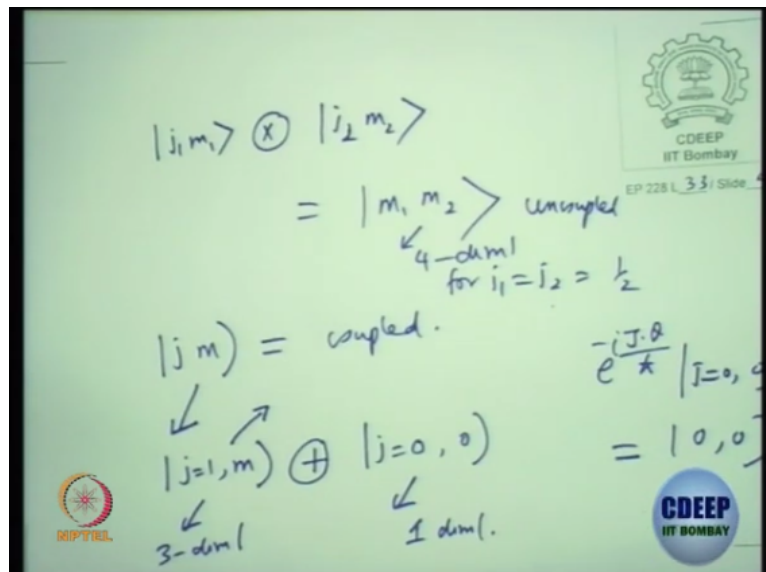 |j₁ m₁⟩ ⊗ |j₂ m₂⟩
CDEEP
IIT Bombay
EP 228 L 33 / Slide
= |m₁ m₂⟩ uncoupled
4-diml
for j₁ = j₂ = 1/2
|j m) = coupled.
e^{-i J·θ/ħ} |J=0, 0
|j=1, m) ⊕ |j=0, 0) = |0,0
3-diml 1 diml.
NPTEL
CDEEP
IIT BOMBAY